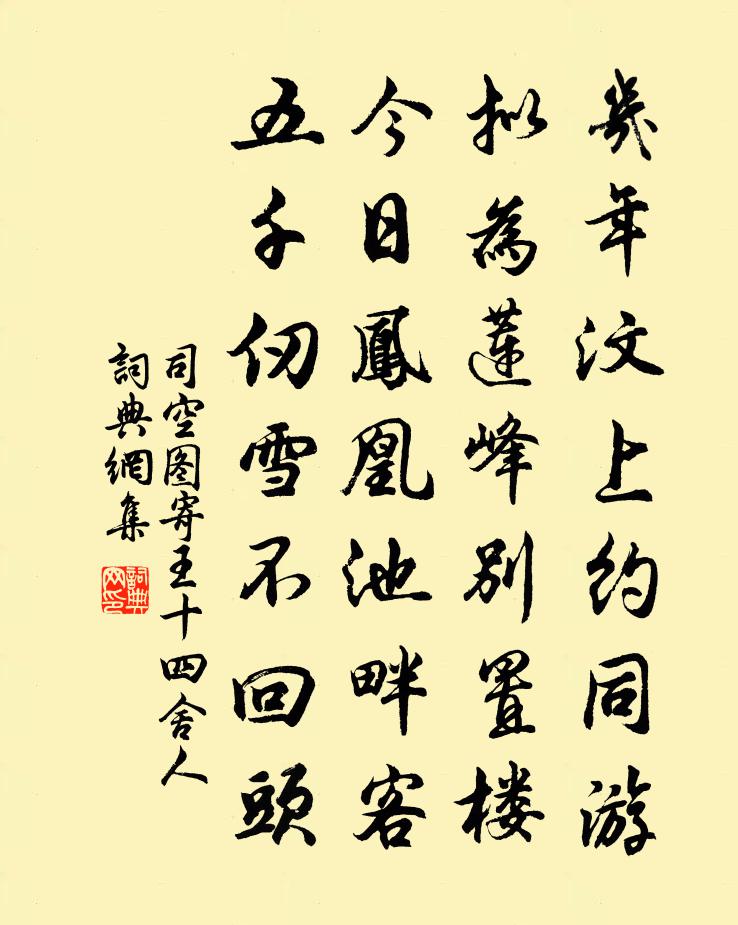 幾年汶上约同游
拟為蓮峰别置楼
今日鳳凰池畔客
五千仞雪不回頭
司空图寄王十四舍人
詞典網集
詞典网印